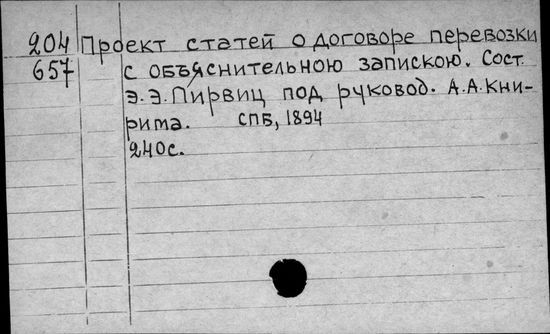 204 Проект статей о договоре перевозки
657 с объяснительною запискою. Сост.
Э.Э.Пирвиц под руковод. А.А.Кни-
рима. СПБ, 1894
240с.